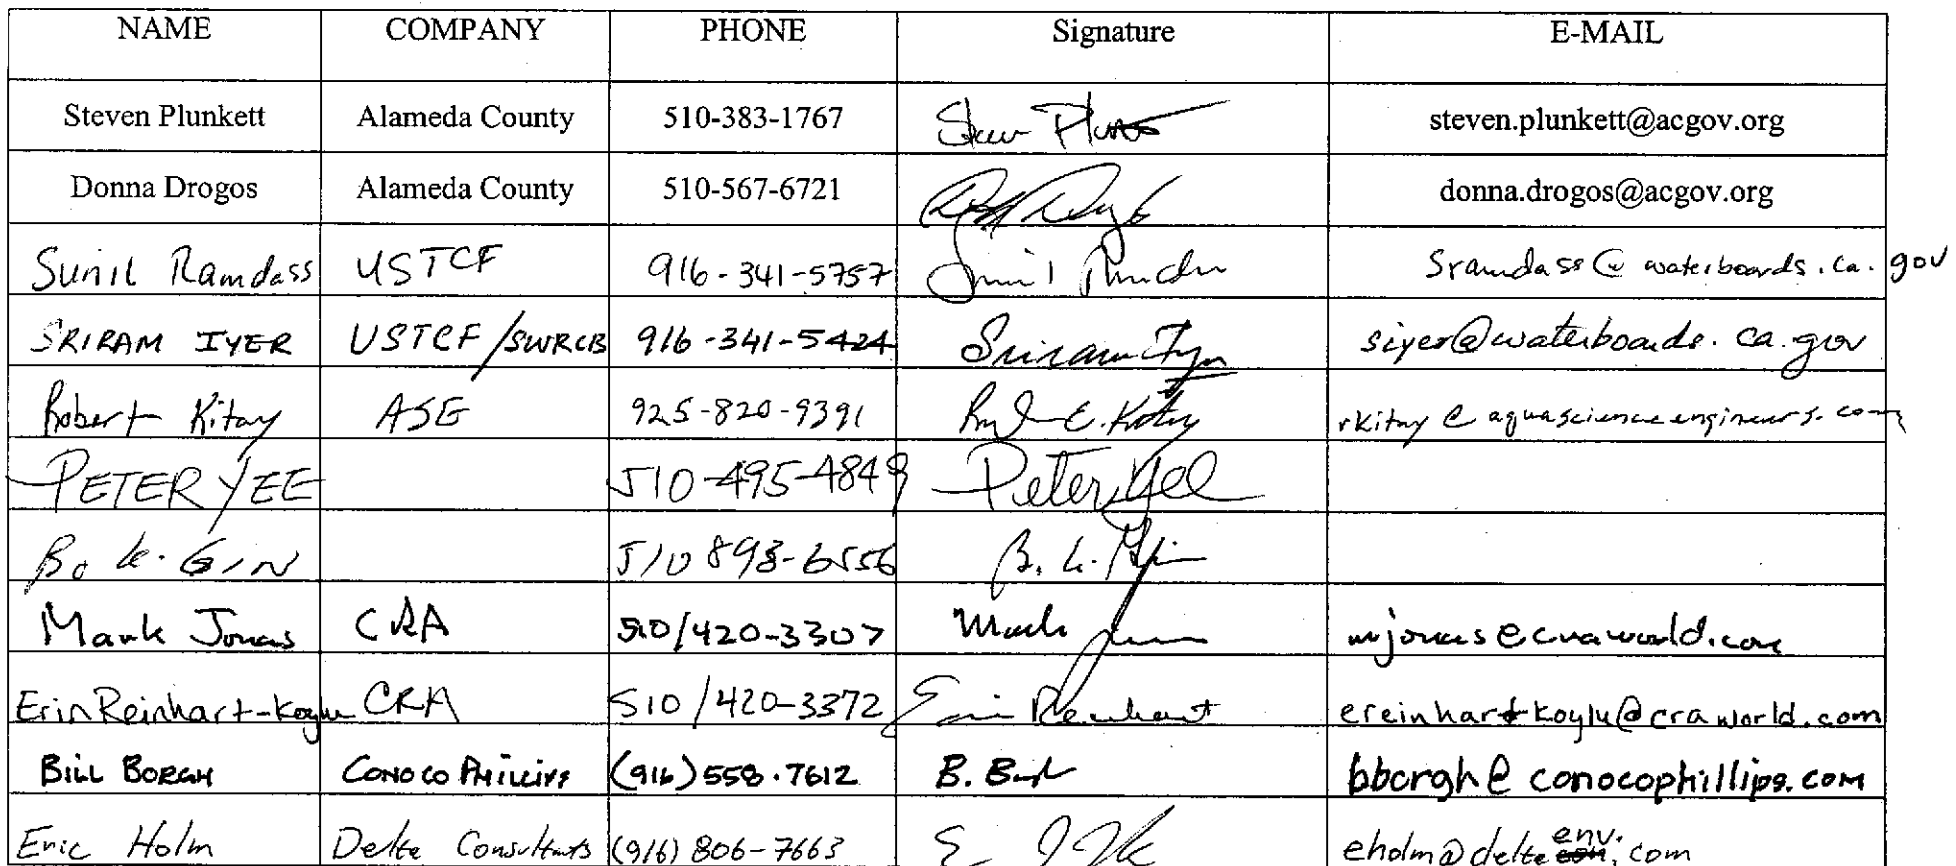 NAME COMPANY PHONE Signature E-MAIL
Steven Plunkett Alameda County 510-383-1767 steven.plunkett@acgov.org
Donna Drogos Alameda County 510-567-6721 donna.drogos@acgov.org
Sunil Ramdass USTCF 916-341-5757 Sramdass@waterboards.ca.gov
SRIRAM IYER USTCF/SWRCB 916-341-5424 Sriram Iyer siyer@waterboards.ca.gov
Robert Kitay ASE 925-820-9391 E. Kitay rkitay@aquascienceengineers.com
PETER YEE 510-495-4849 Peter Yee
Bo K. GIN 510 893-6556 B. K. Gin
Mark Jonas CRA 510/420-3307 Mark mjonas@craworld.com
Erin Reinhart-Koylu CRA 510/420-3372 Erin Reinhart ereinhartkoylu@craworld.com
BILL BORGH CONOCOPHILLIPS (916)558.7612 B. Borgh bborgh@conocophillips.com
Eric Holm Delta Consultants (916) 806-7663 eholm@deltaenv.com